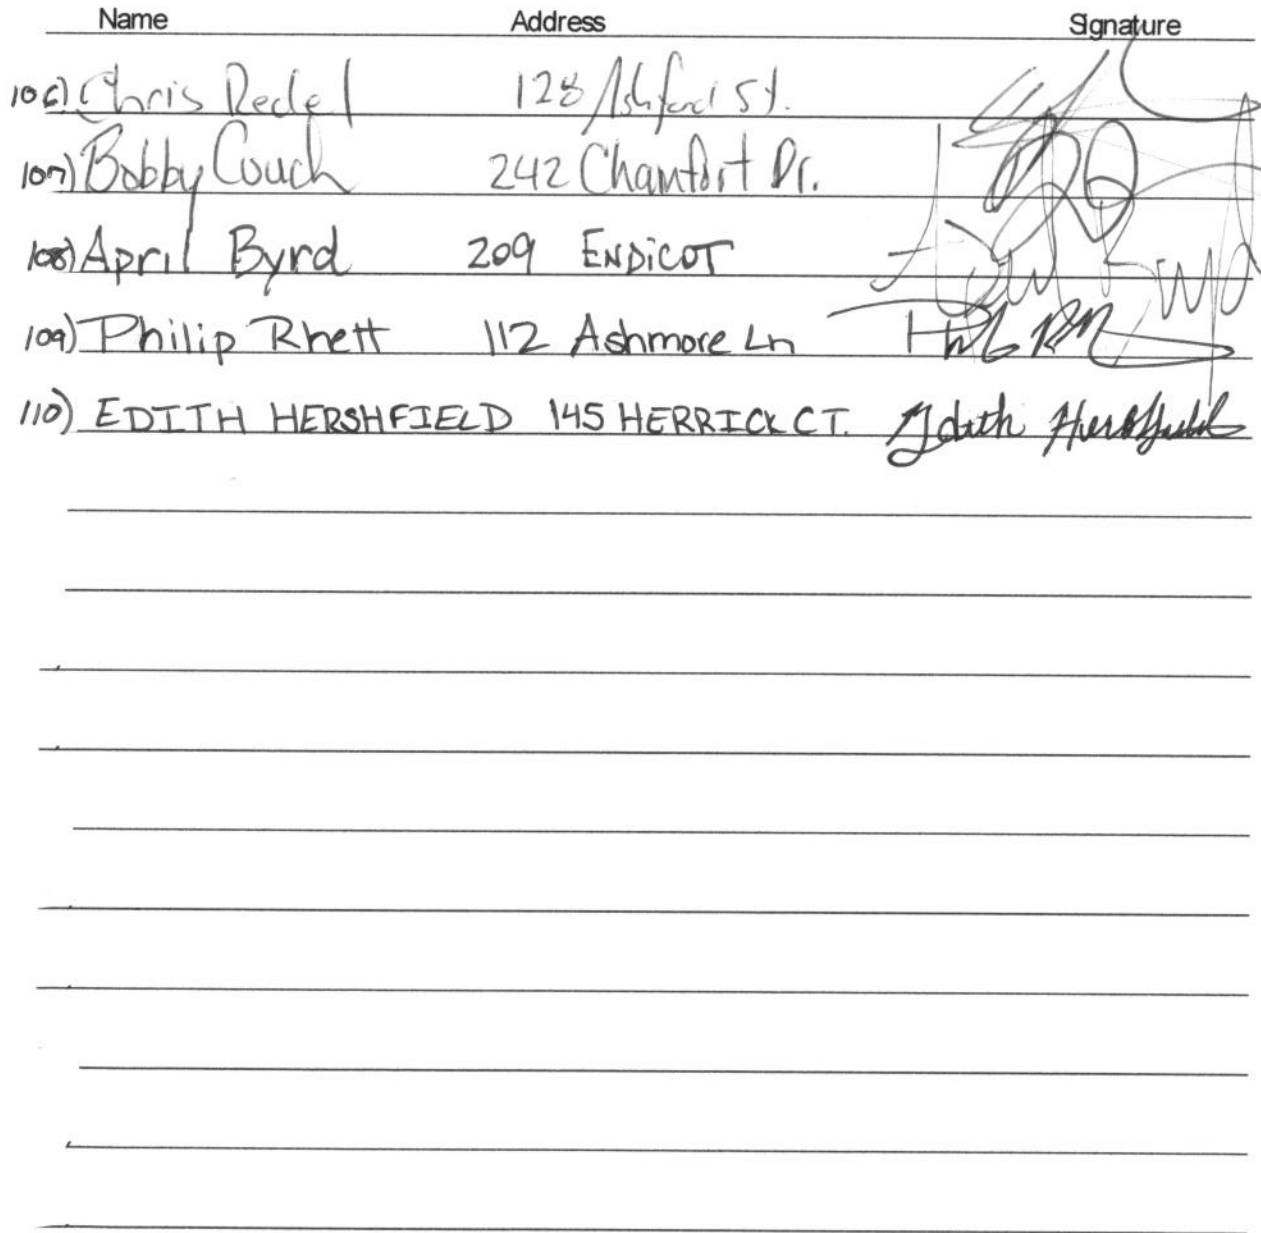 Name Address Signature
106) Chris Redel 128 Ashford St.
107) Bobby Couch 242 Chamfort Dr.
108) April Byrd 209 ENDICOT April Byrd
109) Philip Rhett 112 Ashmore Ln
110) EDITH HERSHFIELD 145 HERRICK CT. Edith Hershfield